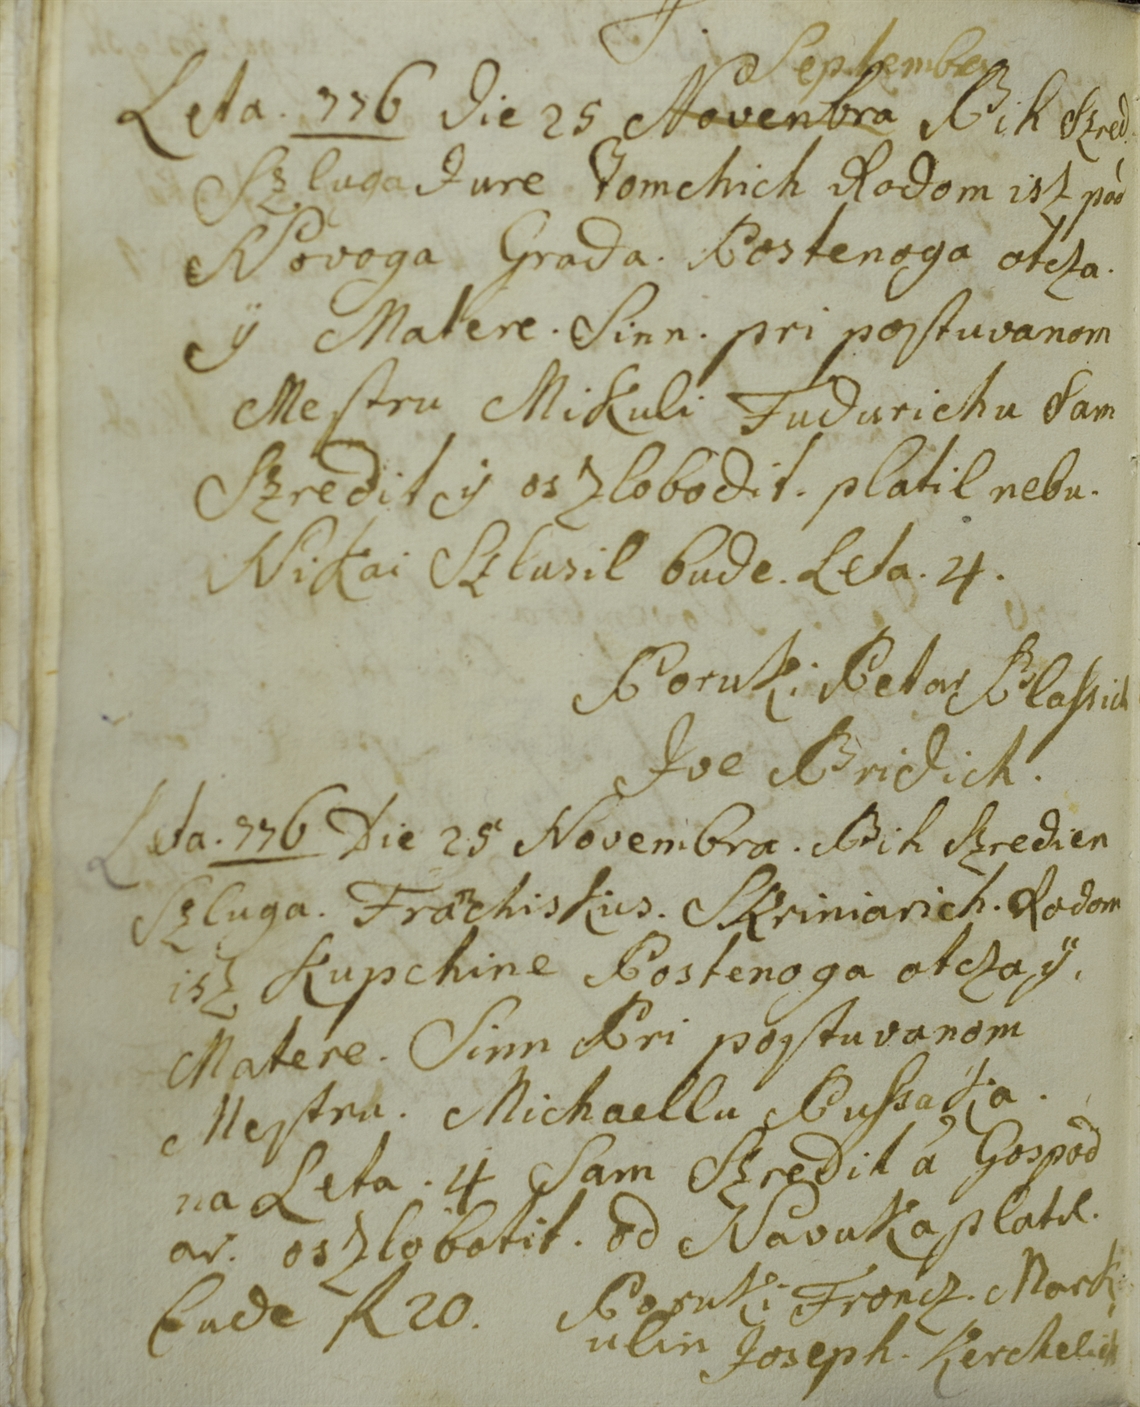 Septembra
Leta. 776 Die 25 Novenbra Bih Szred.
Szluga Jure Tomchich Rodom isz pod
Novoga Grada. Postenoga otcza.
ÿ Matere. Sinn. pri postuvanom
Mestru Mikuli Fudurichu Sam
Szredit ÿ oszlobodit. platil nebu.
Nikai Szlusil bude. Leta. 4.
Poruki Petar Blassich
Ive Bridich.
Leta. 776 Die 25 Novembra. Bih Szredien
Szluga. Franchiskus. Skriniarich. Rodom
isz Kupchine Postenoga otcza ÿ.
Matere. Sinn Pri postuvanom
Mestru. Michaellu Pussaka.
na Leta. 4 Sam Szredit a Gospod
ar. oszlobotit. od Navuka platil.
bude R 20. Poruki Francz. Mark
ulin Joseph. Kerchelich